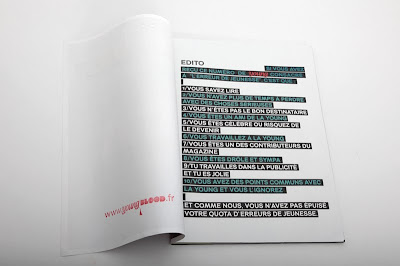 www.youngblood.fr
EDITO
SI VOUS AVEZ
REÇU CE NUMERO DE YOUNG CONSACRÉ
À "L'ERREUR DE JEUNESSE", C'EST QUE :
1/VOUS SAVEZ LIRE
2/VOUS N'AVEZ PLUS DE TEMPS À PERDRE
AVEC DES CHOSES SERIEUSES
3/VOUS N'ÊTES PAS LE BON DESTINATAIRE
4/VOUS ÊTES UN AMI DE LA YOUNG
5/VOUS ÊTES CÉLÈBRE OU RISQUEZ DE
LE DEVENIR
6/VOUS TRAVAILLEZ À LA YOUNG
7/VOUS ÊTES UN DES CONTRIBUTEURS DU
MAGAZINE
8/VOUS ÊTES DRÔLE ET SYMPA
9/TU TRAVAILLES DANS LA PUBLICITÉ
ET TU ES JOLIE
10/VOUS AVEZ DES POINTS COMMUNS AVEC
LA YOUNG ET VOUS L'IGNOREZ
ET COMME NOUS, VOUS N'AVEZ PAS ÉPUISÉ
VOTRE QUOTA D'ERREURS DE JEUNESSE.